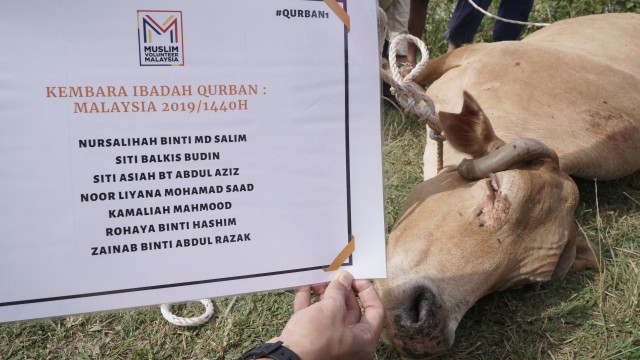 #QURBAN1
MUSLIM
VOLUNTEER
MALAYSIA
KEMBARA IBADAH QURBAN :
MALAYSIA 2019/1440H
NURSALIHAH BINTI MD SALIM
SITI BALKIS BUDIN
SITI ASIAH BT ABDUL AZIZ
NOOR LIYANA MOHAMAD SAAD
KAMALIAH MAHMOOD
ROHAYA BINTI HASHIM
ZAINAB BINTI ABDUL RAZAK